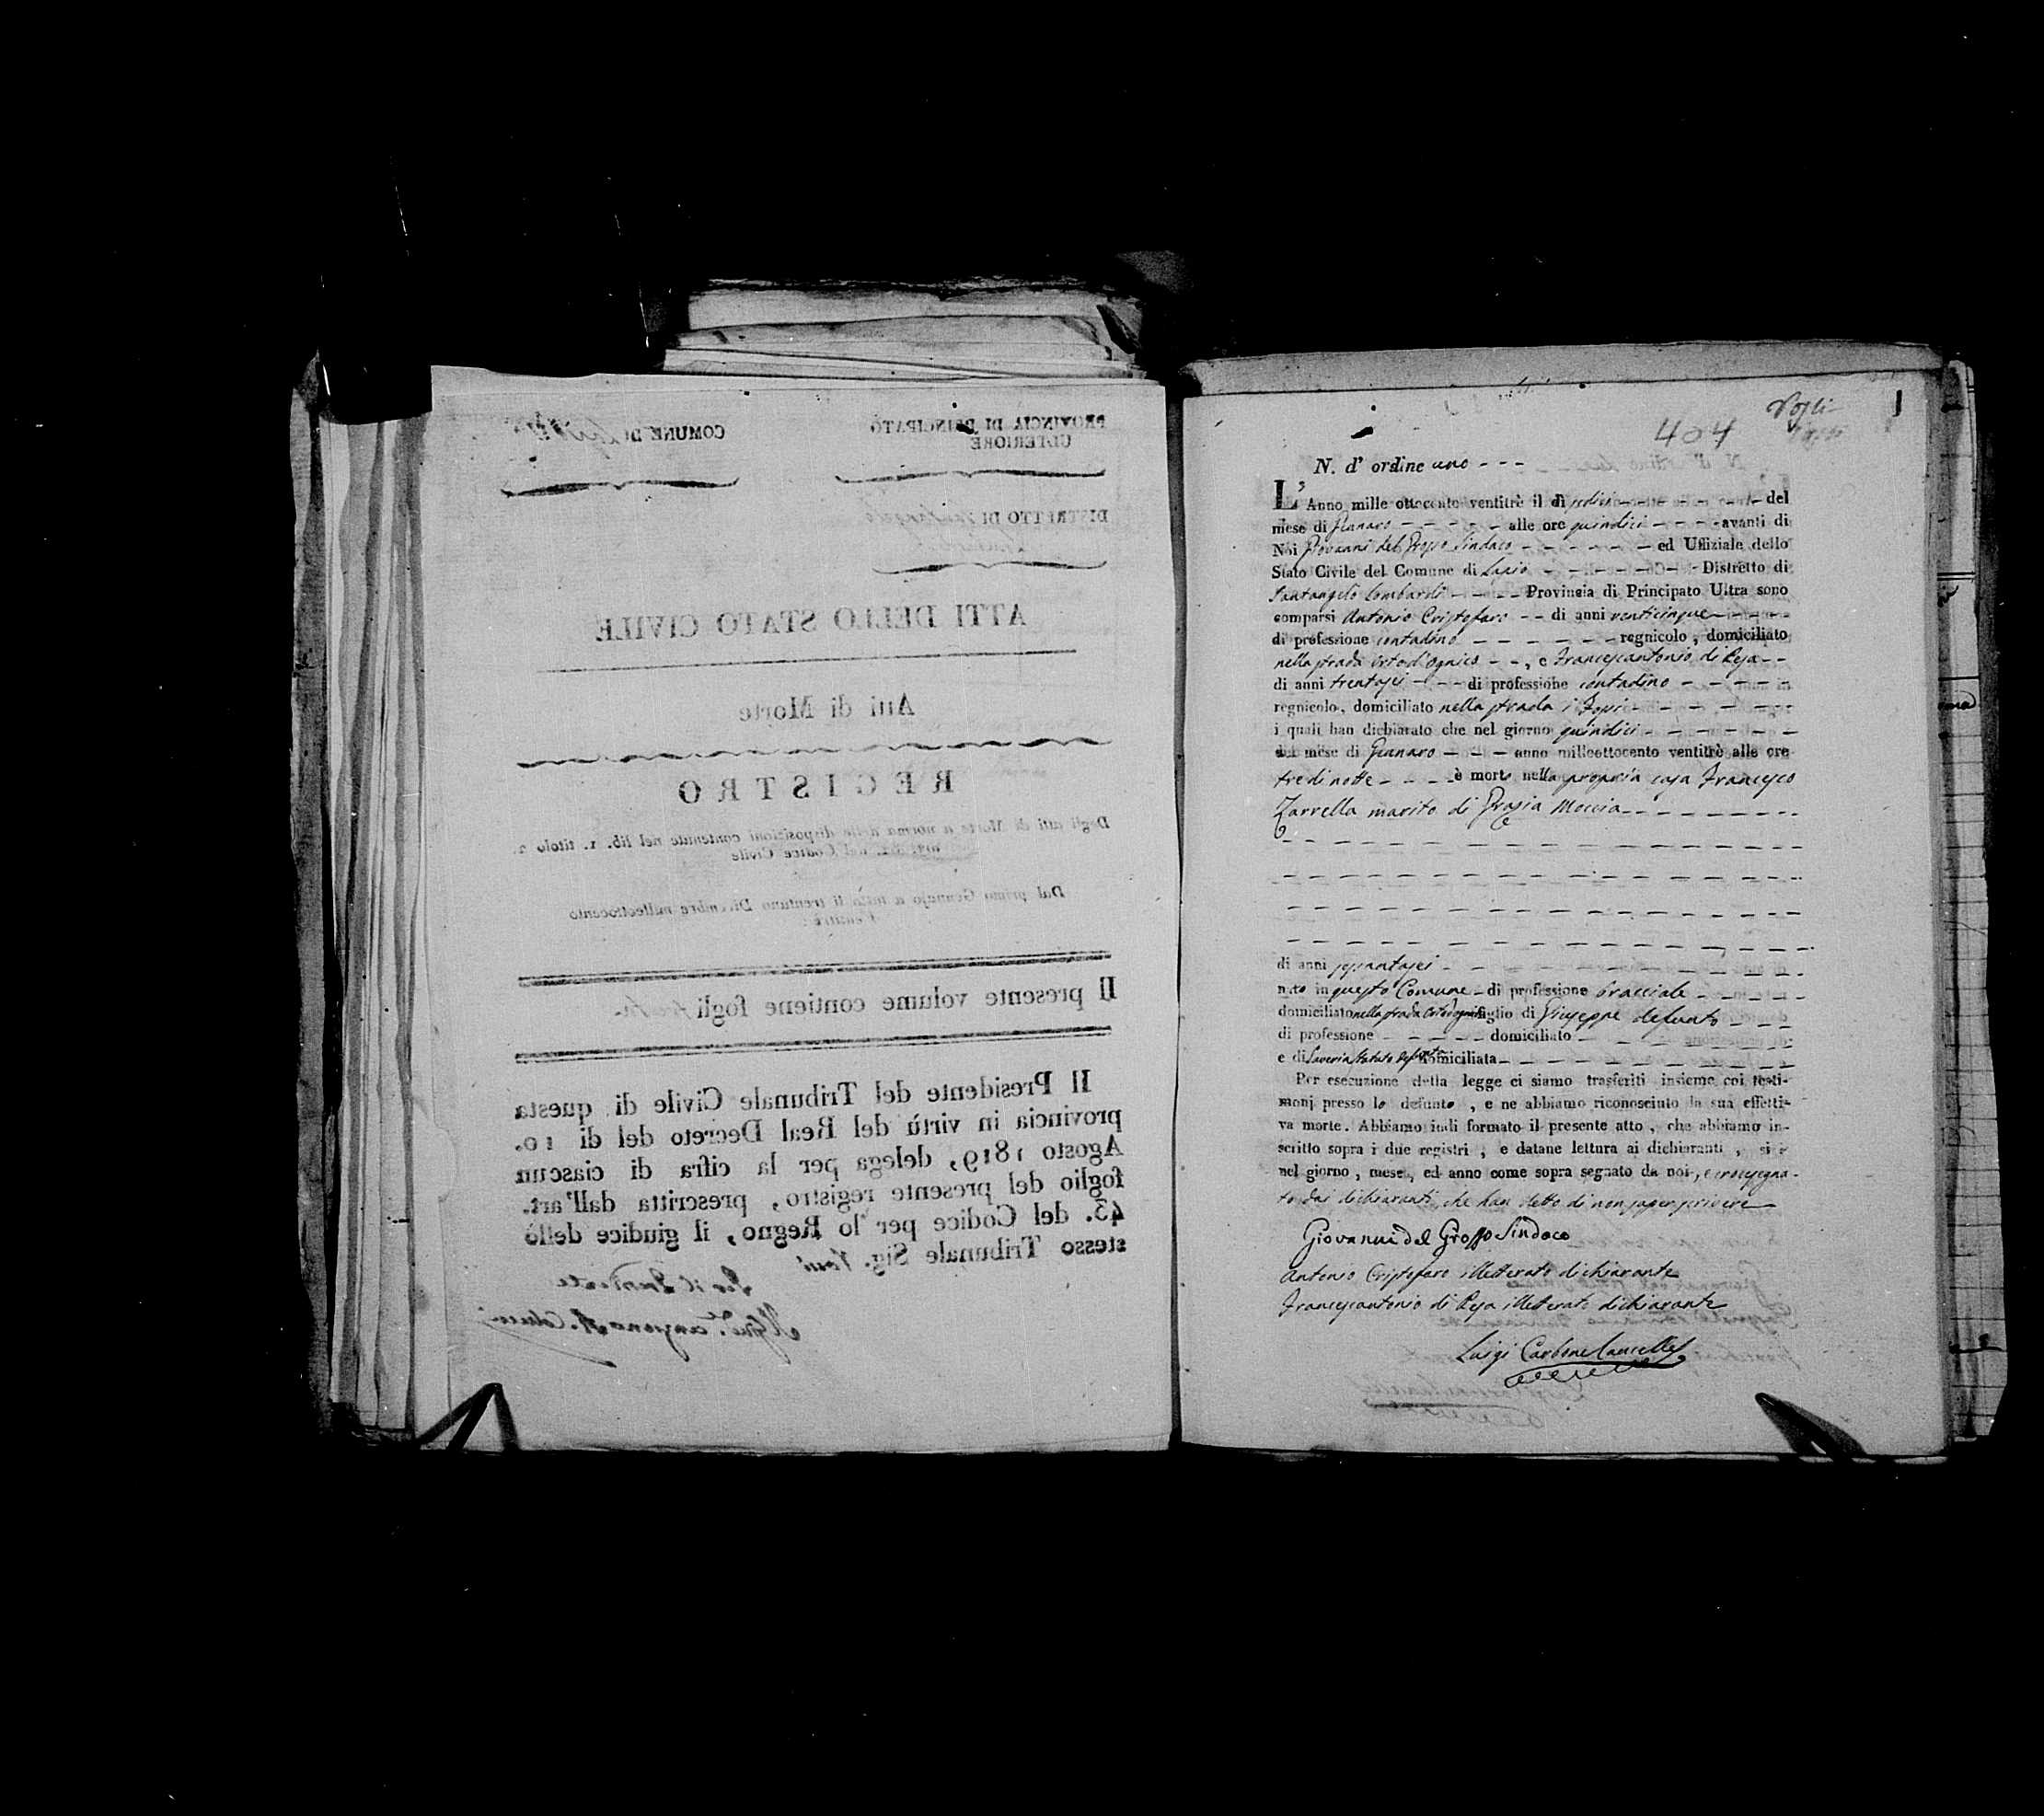 PROVINCIA DI PRINCIPATO
ULTERIORE
COMUNE DI
DISTRETTO DI
ATTI DELLO STATO CIVILE
Atti di Morte
REGISTRO
Degli atti di Morte a norma delle disposizioni contenute nel lib. 1. titolo 2.
nel Codice Civile
Dal primo Gennajo a tutto li trentuno Dicembre milleottocento
Il presente volume contiene fogli
Il Presidente del Tribunale Civile di questa
provincia in virtù del Real Decreto del di 10.
Agosto 1819, delega per la cifra di ciascun
foglio del presente registro, prescritta dall'art.
43. del Codice per lo Regno, il giudice dello
stesso Tribunale Sig.
404
1
N. d' ordine uno - - -
L'Anno mille ottocento ventitrè il dì sedici - - - del
mese di Gianaro - - - alle ore quindici - - - avanti di
Noi Giovanni del Grosso Sindaco - - - ed Uffiziale dello
Stato Civile del Comune di Lapio - - - Distretto di
Santangelo Lombardi - - - Provincia di Principato Ultra sono
comparsi Antonio Cristofaro - - di anni venticinque - - -
di professione contadino - - - regnicolo, domiciliato
nella strada - -, e Francescantonio di Reja - -
di anni trentasei - - - di professione contadino - - -
regnicolo, domiciliato nella strada i Fossi - - -
i quali han dichiarato che nel giorno quindici - - -
del mese di Gianaro - - - anno milleottocento ventitrè alle ore
tre di notte - - - è morto nella propria casa Francesco
Zarrella marito di Grazia Moccia - - -
di anni sessantasei - - -
nato in questo Comune - di professione bracciale - - -
domiciliato nella strada figlio di Giuseppe defunto - - -
di professione - - - domiciliato - - -
e di Saveria domiciliata - - -
Per esecuzione della legge ci siamo trasferiti insieme coi testi-
monj presso lo defunto, e ne abbiamo riconosciuto la sua effetti-
va morte. Abbiamo indi formato il presente atto, che abbiamo in-
scritto sopra i due registri, e datane lettura ai dichiaranti, si è
nel giorno, mese, ed anno come sopra segnato da noi, e crocesegna-
to dai dichiaranti, che han detto di non saper scrivere
Giovanni del Grosso Sindaco
Antonio Cristofaro illetterato dichiarante
Francescantonio di Reja illetterato dichiarante
Luigi Carbone Cancelle